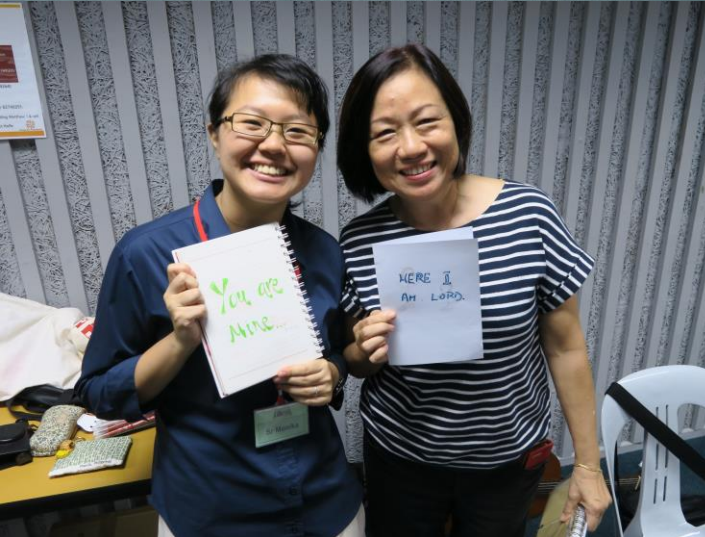 You are
Mine...
HERE I
AM LORD.